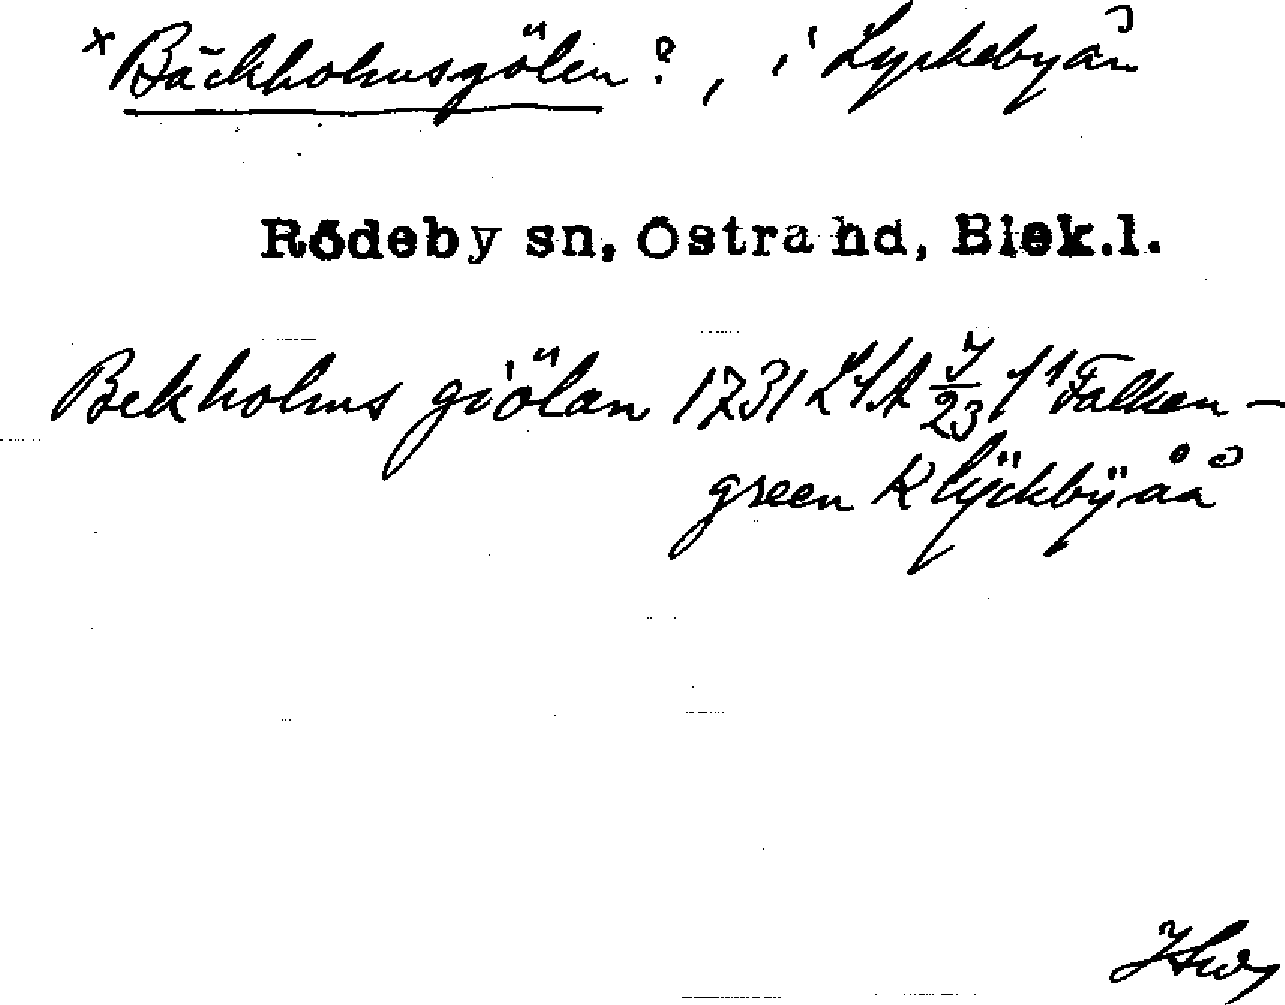 *Bäckholmsgölen?, i Lyckebyån
Rödeby sn, Östra hd, Blek.l.
Bekholms giölan 1731 LSA 7/23 f1 Falken-
green K lÿckbÿ åå